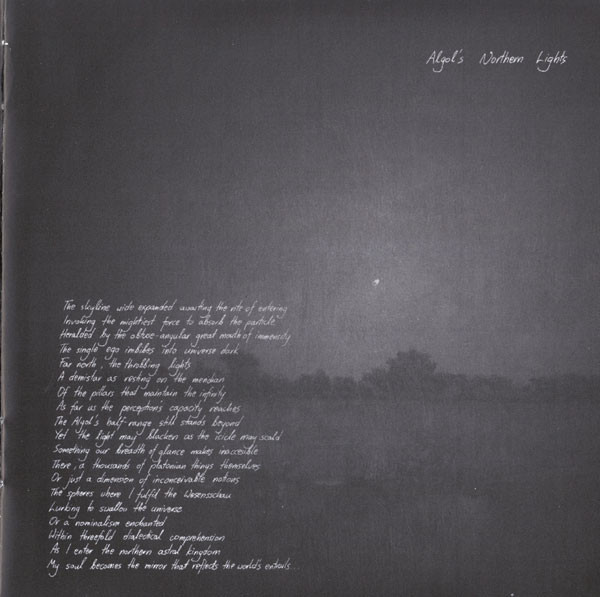 Algol's Northern Lights
The skyline wide expanded awaiting the rite of entering
Invoking the mightiest force to absorb the particle
Heralded by the obtuse-angular great mouth of immensity
The single ego imbibes into universe dark
Far north, the throbbing lights
A demistar as resting on the meridian
Of the pillars that maintain the infinity
As far us the perceptions capacity reaches
The Algol's half-range still stands beyond
Yet the light may blacken as the icicle may scald
Something our breadth of glance makes inaccesible
There, a thousands of platonian things themselves
Or just a dimension of inconceivable notions
The spheres where I fulfil the Wesensschau
Lurking to swallow the universe
Or a nominalism enchanted
Within threefold dialectical comprehension
As I enter the northern astral kingdom
My soul becomes the mirror that reflects the world's entrails...